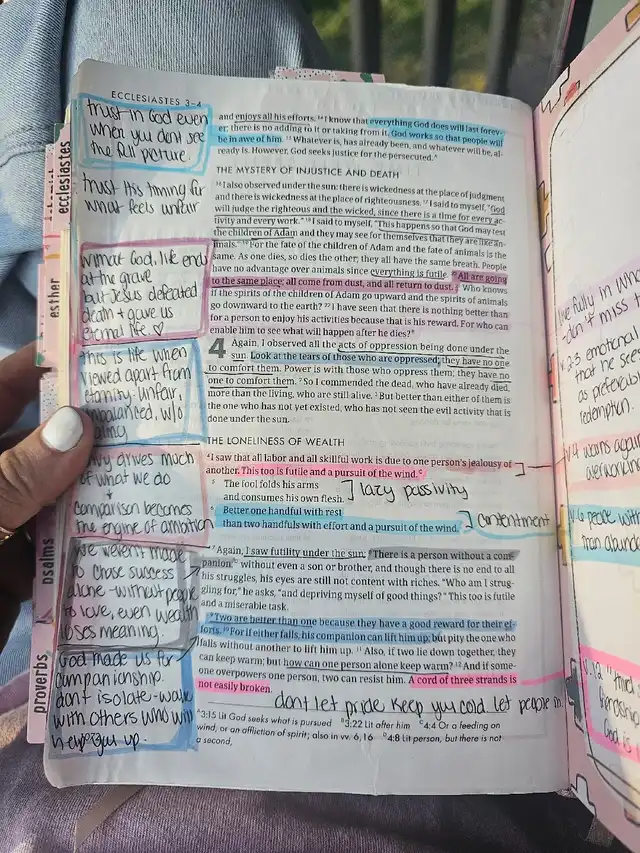 ECCLESIASTES 3–4
trust in God even
when you dont see
the full picture.
trust His timing for
what feels unfair
w/out God, life ends
at the grave
but Jesus defeated
death & gave us
eternal life. ♡
this is life when
viewed apart from
eternity. unfair,
unbalanced, w/o
envy drives much
of what we do
&
comparison becomes
the engine of ambition
we weren't made
to chase success
alone - without people
to love, even wealth
loses meaning.
God made us for
companionship.
dont isolate - walk
with others who will
help you up.
and enjoys all his efforts. 14 I know that everything God does will last forev-
er; there is no adding to it or taking from it. God works so that people will
be in awe of him. 15 Whatever is, has already been, and whatever will be, al-
ready is. However, God seeks justice for the persecuted.A
THE MYSTERY OF INJUSTICE AND DEATH
16 I also observed under the sun: there is wickedness at the place of judgment
and there is wickedness at the place of righteousness. 17 I said to myself, "God
will judge the righteous and the wicked, since there is a time for every ac-
tivity and every work." 18 I said to myself, "This happens so that God may test
the children of Adam and they may see for themselves that they are like an-
imals." 19 For the fate of the children of Adam and the fate of animals is the
same. As one dies, so dies the other; they all have the same breath. People
have no advantage over animals since everything is futile. 20 All are going
to the same place; all come from dust, and all return to dust. 21 Who knows
if the spirits of the children of Adam go upward and the spirits of animals
go downward to the earth? 22 I have seen that there is nothing better than
for a person to enjoy his activities because that is his reward. For who can
enable him to see what will happen after he dies?B
4 Again, I observed all the acts of oppression being done under the
sun. Look at the tears of those who are oppressed; they have no one
to comfort them. Power is with those who oppress them; they have no
one to comfort them. 2 So I commended the dead, who have already died,
more than the living, who are still alive. 3 But better than either of them is
the one who has not yet existed, who has not seen the evil activity that is
done under the sun.
THE LONELINESS OF WEALTH
4 I saw that all labor and all skillful work is due to one person's jealousy of
another. This too is futile and a pursuit of the wind.C
5 The fool folds his arms
and consumes his own flesh.
lazy passivity
6 Better one handful with rest
than two handfuls with effort and a pursuit of the wind.
contentment
7 Again, I saw futility under the sun: 8 There is a person without a com-
panion,D without even a son or brother, and though there is no end to all
his struggles, his eyes are still not content with riches. "Who am I strug-
gling for," he asks, "and depriving myself of good things?" This too is futile
and a miserable task.
9 Two are better than one because they have a good reward for their ef-
forts. 10 For if either falls, his companion can lift him up; but pity the one who
falls without another to lift him up. 11 Also, if two lie down together, they
can keep warm; but how can one person alone keep warm? 12 And if some-
one overpowers one person, two can resist him. A cord of three strands is
not easily broken.
dont let pride keep you cold. let people in.
A 3:15 Lit God seeks what is pursued B 3:22 Lit after him C 4:4 Or a feeding on
wind, or an affliction of spirit; also in vv. 6,16 D 4:8 Lit person, but there is not
a second,
ecclesiastes
esther
psalms
proverbs
live fully in
don't miss
v. 2-3 emotional
that he see
as preferable
redemption.
v.4 warns again
overworking
v.6 peace with
than abund
v. 12 "third
friendship
God is